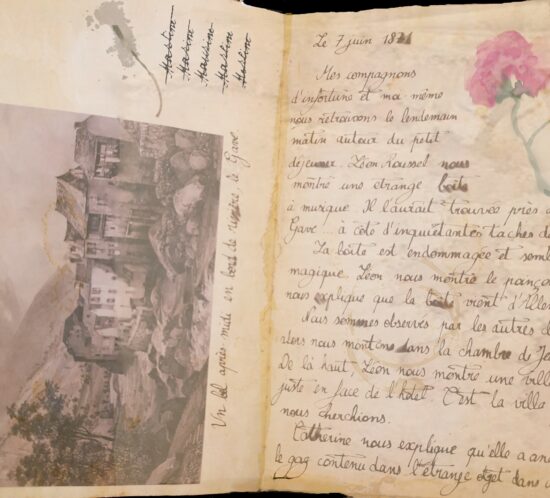 Le 7 juin 1821
Mes compagnons
d'infortune et moi même
nous retrouvons le lendemain
matin autour du petit
déjeuner. Léon Roussel nous
montre une étrange boîte
à musique. Il l'aurait trouvée près
Gave... à côté d'inquiétantes taches de
La boîte est endommagée et semb
magique. Léon nous montre le poinço
nous explique que la boîte vient d'Allem
Nous sommes observés par les autres
alors nous montons dans la chambre de
De là haut, Léon nous montre une vill
juste en face de l'hôtel. C'est la villa
nous cherchions.
Catherine nous explique qu'elle a an
le gaz contenu dans l'étrange objet dans
Un bel après midi en bord de rivière, le Gave